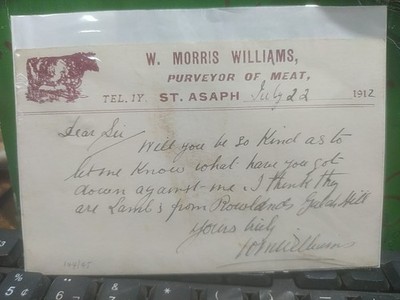 W. MORRIS WILLIAMS,
PURVEYOR OF MEAT,
TEL. 1Y. ST. ASAPH July 22 1912
Dear Sir
Will you be so Kind as to
let me Know what have you got
down against me. I think they
are Lambs from Rowlands Hill
yours truly
W M Williams